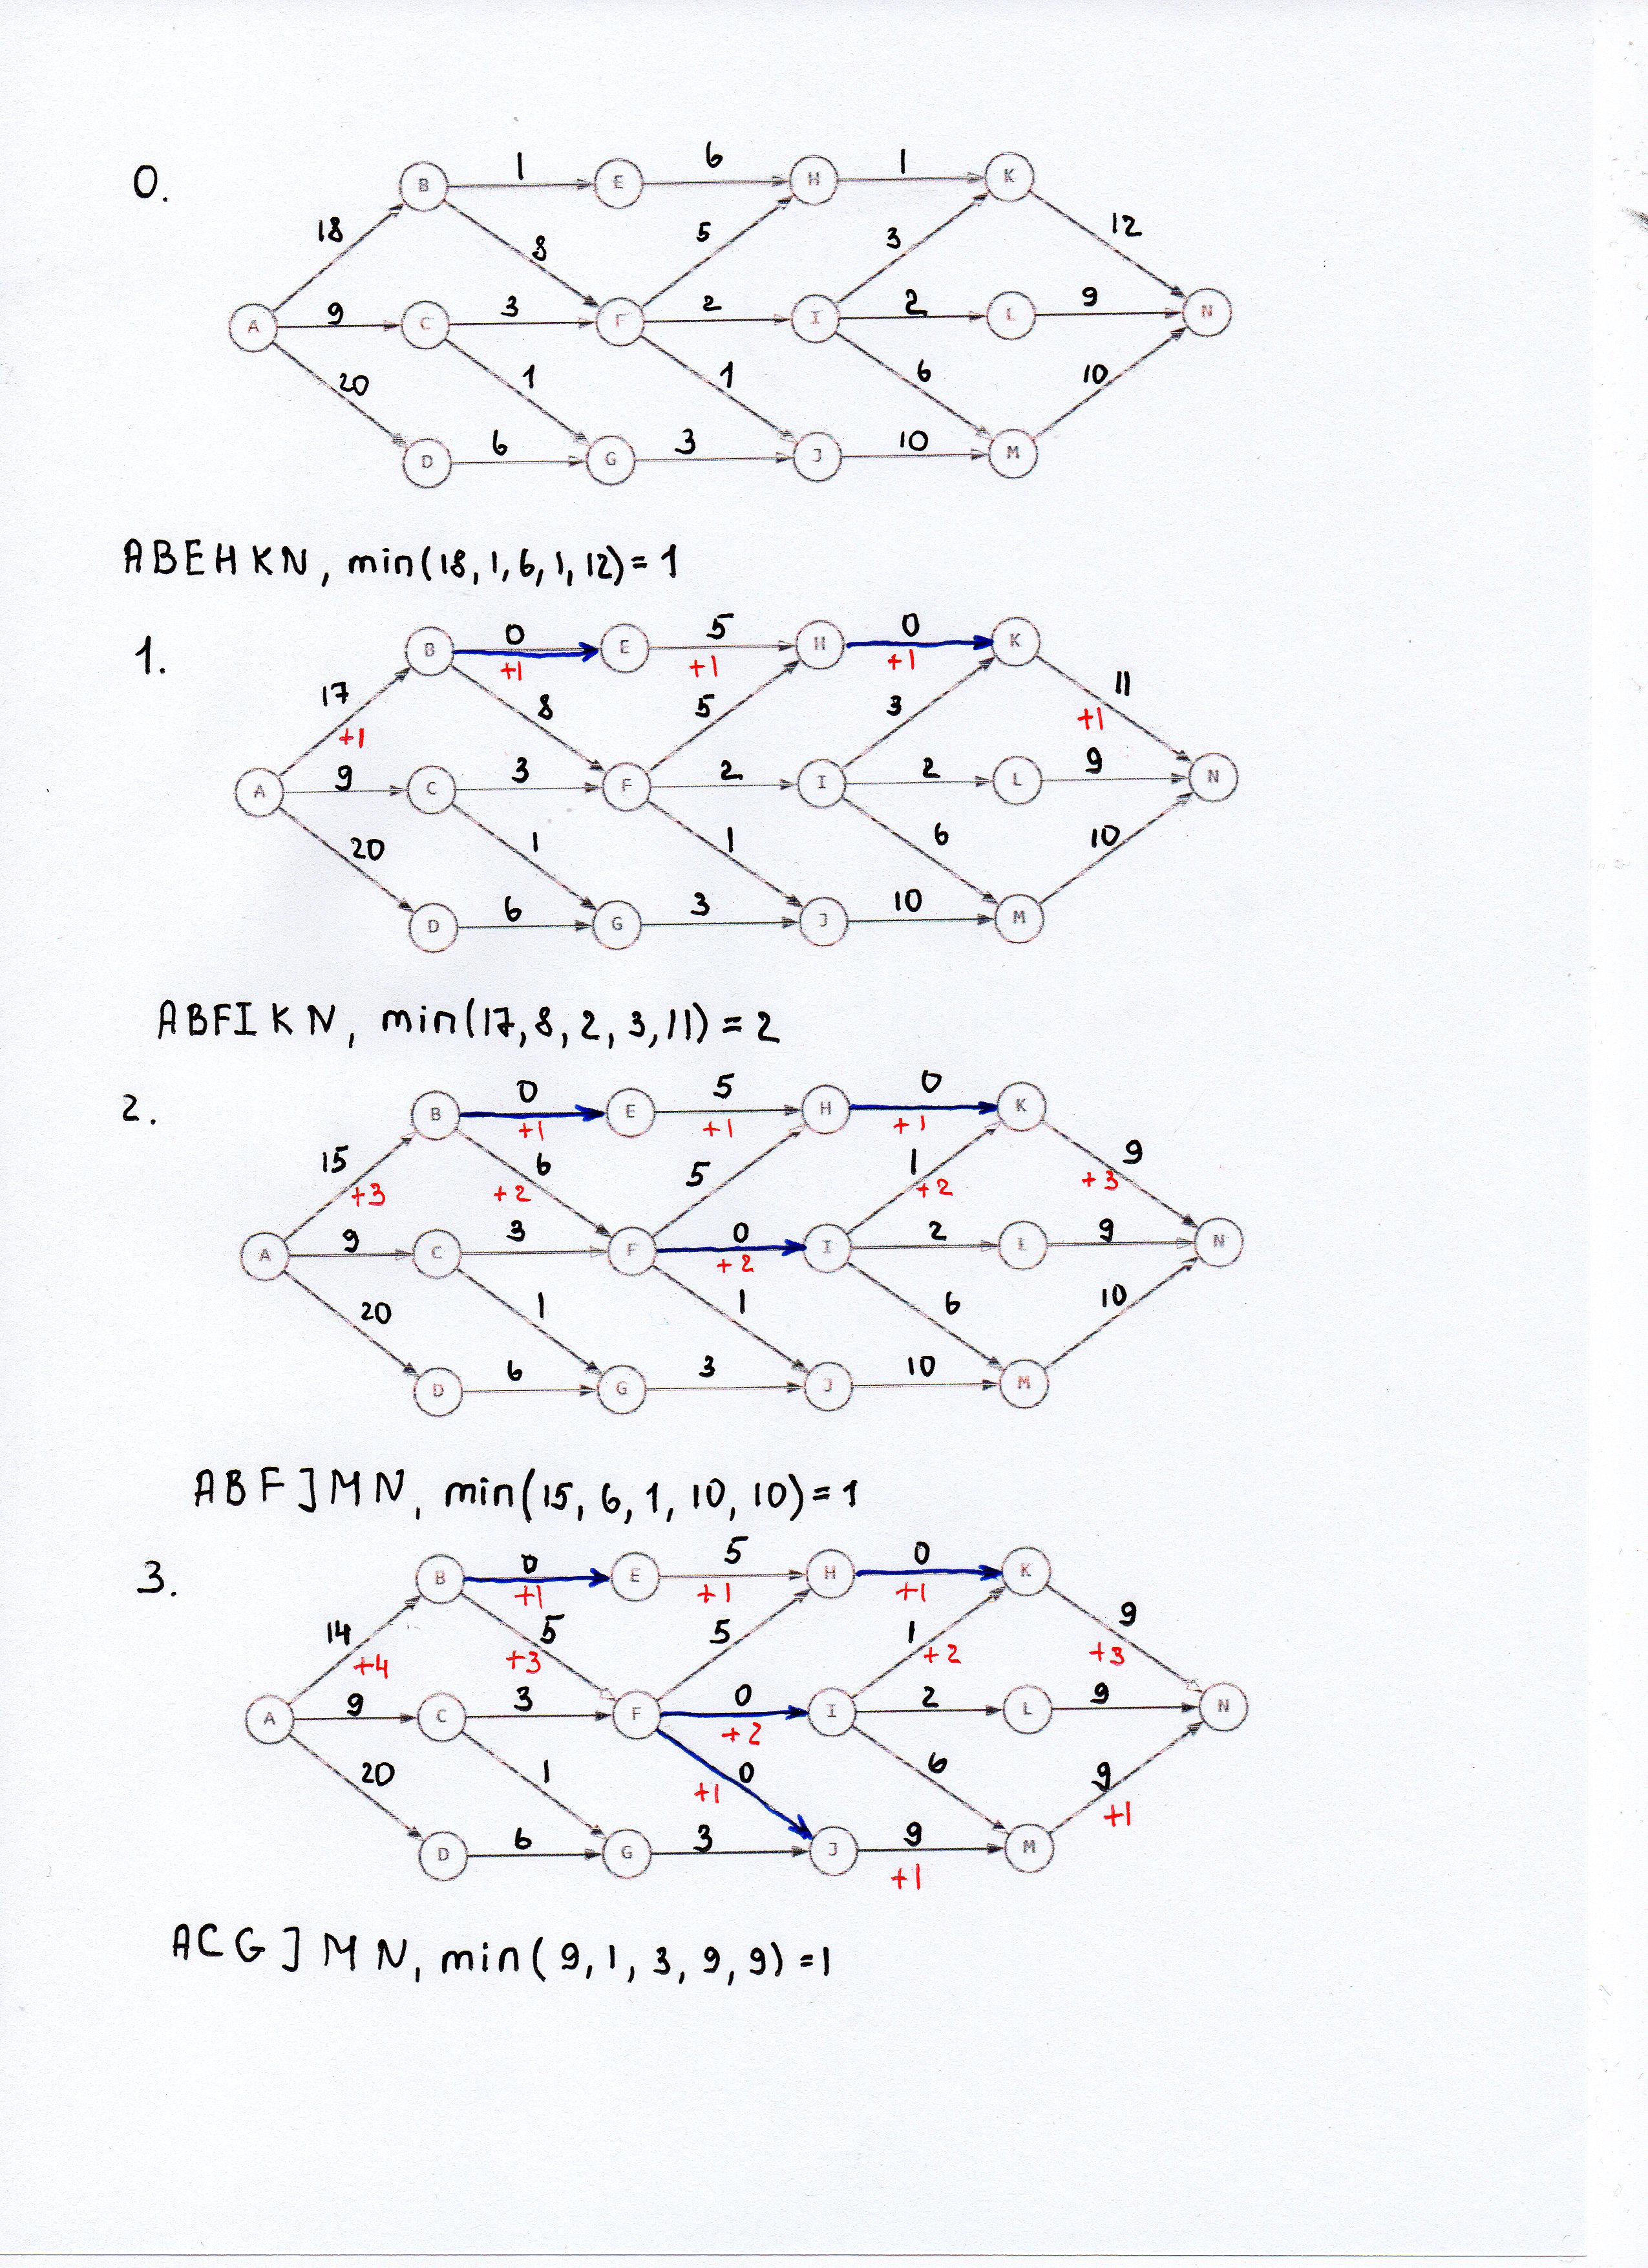 0.
B 1 E 6 H 1 K
18 8 5 3 12
A 9 C 3 F 2 I 2 L 9 N
20 1 1 6 10
D 6 G 3 J 10 M
ABEHKN, min(18,1,6,1,12)=1
1.
B 0 E 5 H 0 K
+1 +1 +1
17 8 5 3 11
+1 +1
A 9 C 3 F 2 I 2 L 9 N
20 1 1 6 10
D 6 G 3 J 10 M
ABFIKN, min(17,8,2,3,11)=2
2.
B 0 E 5 H 0 K
+1 +1 +1
15 6 5 1 9
+3 +2 +2 +3
A 9 C 3 F 0 I 2 L 9 N
+2
20 1 1 6 10
D 6 G 3 J 10 M
ABFJMN, min(15,6,1,10,10)=1
3.
B 0 E 5 H 0 K
+1 +1 +1
14 5 5 1 9
+4 +3 +2 +3
A 9 C 3 F 0 I 2 L 9 N
+2
20 1 0 6 9
+1 +1
D 6 G 3 J 9 M
+1
ACGJMN, min(9,1,3,9,9)=1